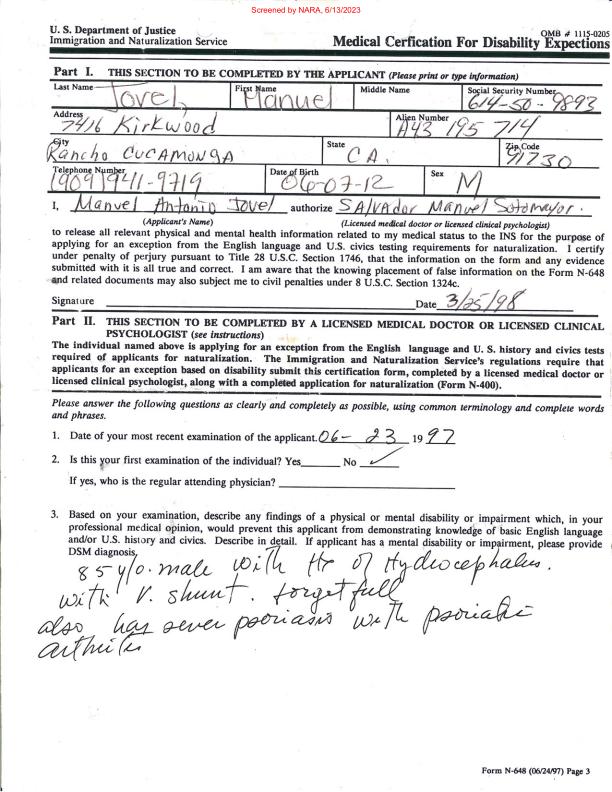 Screened by NARA, 6/13/2023
U. S. Department of Justice
Immigration and Naturalization Service
OMB # 1115-0205
Medical Cerfication For Disability Expections
Part I. THIS SECTION TO BE COMPLETED BY THE APPLICANT (Please print or type information)
Last Name Jovel, First Name Manuel Middle Name Social Security Number 614-50-9893
Address 7416 Kirkwood Alien Number A43 195 714
City Rancho CUCAMONGA State CA. Zip Code 91730
Telephone Number (909)941-9719 Date of Birth 06-07-12 Sex M
I, Manuel Antonio Jovel authorize SALVADOR Manuel Sotomayor.
(Applicant's Name) (Licensed medical doctor or licensed clinical psychologist)
to release all relevant physical and mental health information related to my medical status to the INS for the purpose of
applying for an exception from the English language and U.S. civics testing requirements for naturalization. I certify
under penalty of perjury pursuant to Title 28 U.S.C. Section 1746, that the information on the form and any evidence
submitted with it is all true and correct. I am aware that the knowing placement of false information on the Form N-648
and related documents may also subject me to civil penalties under 8 U.S.C. Section 1324c.
Signature Date 3/25/98
Part II. THIS SECTION TO BE COMPLETED BY A LICENSED MEDICAL DOCTOR OR LICENSED CLINICAL
PSYCHOLOGIST (see instructions)
The individual named above is applying for an exception from the English language and U. S. history and civics tests
required of applicants for naturalization. The Immigration and Naturalization Service's regulations require that
applicants for an exception based on disability submit this certification form, completed by a licensed medical doctor or
licensed clinical psychologist, along with a completed application for naturalization (Form N-400).
Please answer the following questions as clearly and completely as possible, using common terminology and complete words
and phrases.
1. Date of your most recent examination of the applicant. 06- 23 19 97
2. Is this your first examination of the individual? Yes No ✓
If yes, who is the regular attending physician?
3. Based on your examination, describe any findings of a physical or mental disability or impairment which, in your
professional medical opinion, would prevent this applicant from demonstrating knowledge of basic English language
and/or U.S. history and civics. Describe in detail. If applicant has a mental disability or impairment, please provide
DSM diagnosis.
85 y/o. male with Hx of Hydrocephalus.
with V. shunt. forgetfull
also has sever psoriasis with psoriatic
arthritis
Form N-648 (06/24/97) Page 3